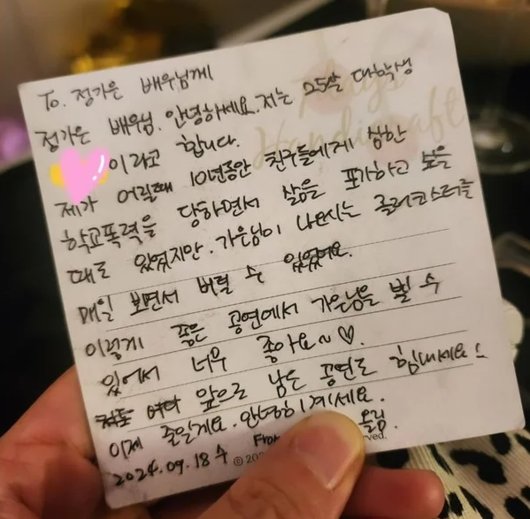 To. 정가은 배우님께
정가은 배우님. 안녕하세요. 저는 25살 대학생
이라고 합니다.
제가 어릴때 10년동안 친구들에게 심한
학교폭력을 당하면서 삶을 포기하고 싶을
때도 있었지만. 가은님이 나오시는 롤러코스터를
매일 보면서 버틸 수 있었어요.
이렇게 좋은 공연에서 가은님을 뵐 수
있어서 너무 좋아요~♡.
앞으로 남은 공연도 힘내세요
이제 줄일게요. 안녕히계세요.
2024.09.18 수 From 올림.